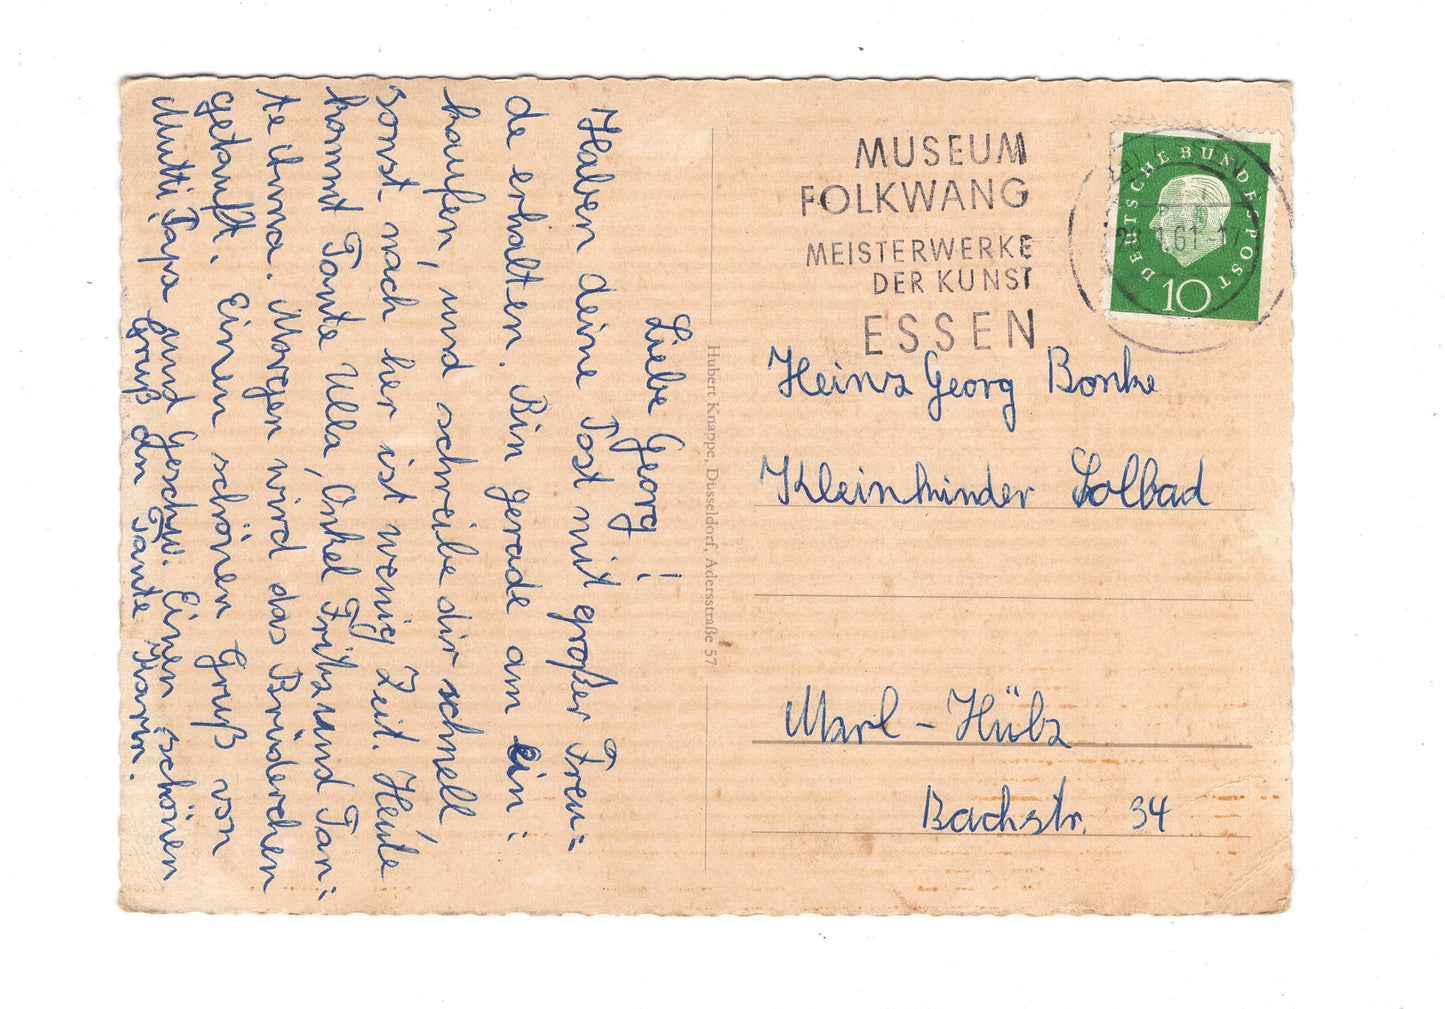 Liebe Georg!
Haben deine Post mit großer Freu=
de erhalten. Bin gerade am ein=
kaufen, und schreibe dir schnell,
sonst nach her ist wenig Zeit. Heute
kommt Tante Ulla, Onkel Fritz und Tan=
te Anna. Morgen wird das Brüderchen
getauft. Einen schönen Gruß von
Mutti, Papa und Geschw. Einen schönen
Gruß an Tante Karin.
Hubert Knappe, Düsseldorf, Adersstraße 57
MUSEUM
FOLKWANG
MEISTERWERKE
DER KUNST
ESSEN
DEUTSCHE BUNDESPOST
10
1.61-17
Heinz Georg Bonke
Kleinkinder Solbad
Marl - Hülz
Bachstr. 34